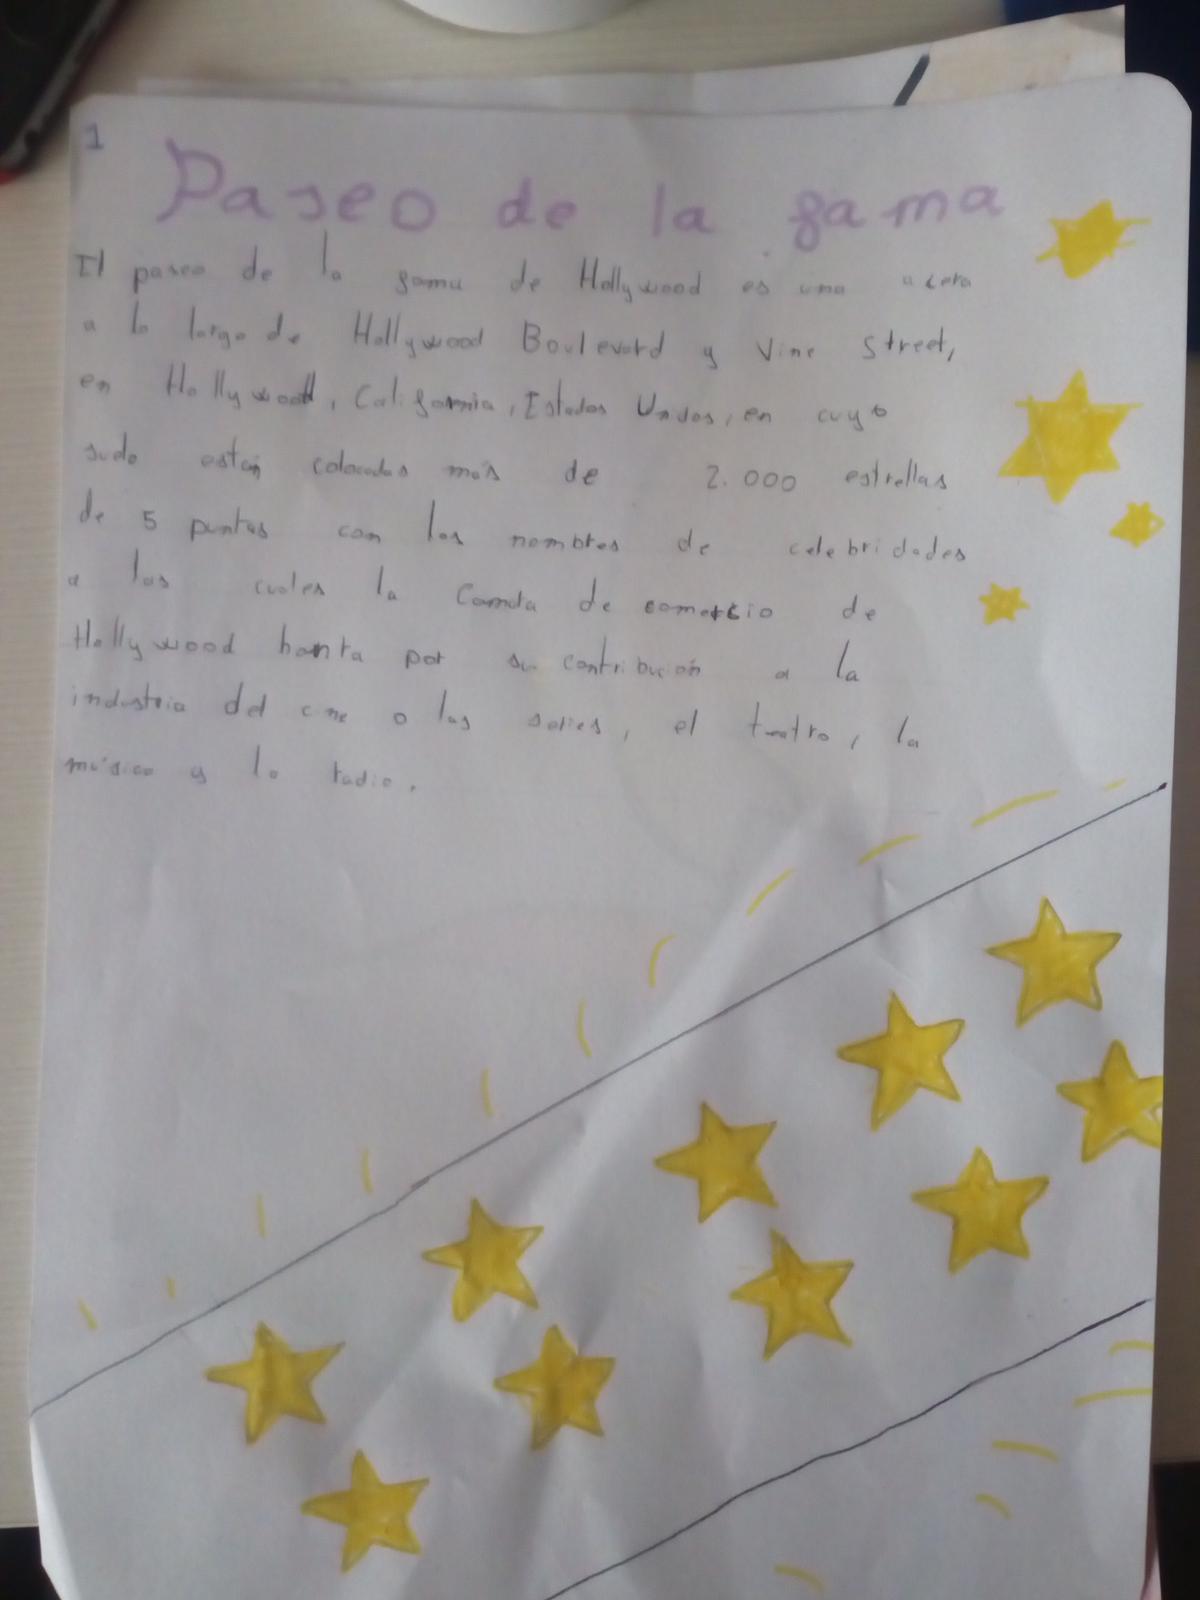 1
Paseo de la fama
El paseo de la fama de Hollywood es una acera
a lo largo de Hollywood Boulevard y Vine Street,
en Hollywood, California, Estados Unidos, en cuyo
suelo están colocadas más de 2.000 estrellas
de 5 puntas con los nombres de celebridades
a las cuales la Camda de comercio de
Hollywood honra por su contribución a la
industria del cine o las series, el teatro, la
música y la radio.